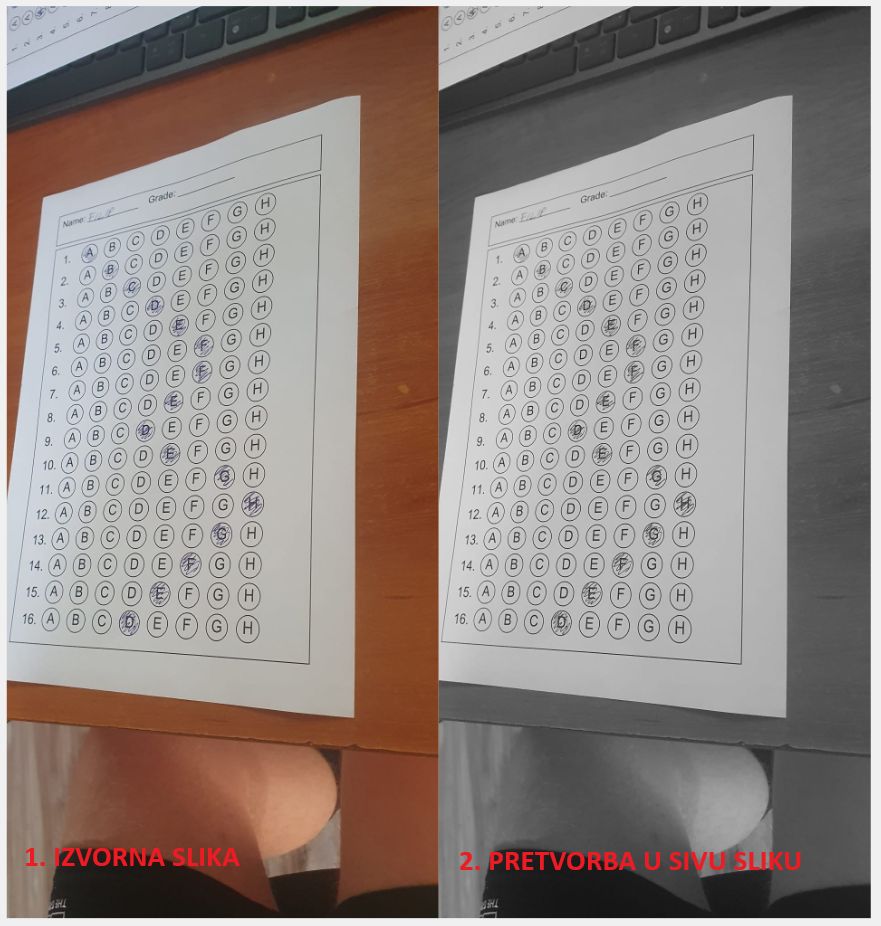 Name: FILIP Grade:
1. A B C D E F G H
2. A B C D E F G H
3. A B C D E F G H
4. A B C D E F G H
5. A B C D E F G H
6. A B C D E F G H
7. A B C D E F G H
8. A B C D E F G H
9. A B C D E F G H
10. A B C D E F G H
11. A B C D E F G H
12. A B C D E F G H
13. A B C D E F G H
14. A B C D E F G H
15. A B C D E F G H
16. A B C D E F G H
1. IZVORNA SLIKA
Name: FILIP Grade:
1. A B C D E F G H
2. A B C D E F G H
3. A B C D E F G H
4. A B C D E F G H
5. A B C D E F G H
6. A B C D E F G H
7. A B C D E F G H
8. A B C D E F G H
9. A B C D E F G H
10. A B C D E F G H
11. A B C D E F G H
12. A B C D E F G H
13. A B C D E F G H
14. A B C D E F G H
15. A B C D E F G H
16. A B C D E F G H
2. PRETVORBA U SIVU SLIKU